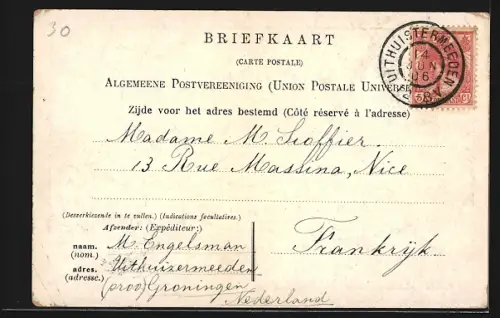 30
BRIEFKAART
(CARTE POSTALE)
ALGEMEENE POSTVEREENIGING (UNION POSTALE UNIVERSE
Zijde voor het adres bestemd (Côté réservé à l'adresse)
UITHUISTERMEEDEN
14
JUN
06
Madame M.
13 Rue Massina, Nice
(Desverkiezende in te vullen.) (Indications facultatives.)
Afzender: (Expéditeur:)
naam. (nom.) M. Engelsman
adres. (adresse.) Uithuizermeeden
(prov) Groningen
Nederland
Frankrijk